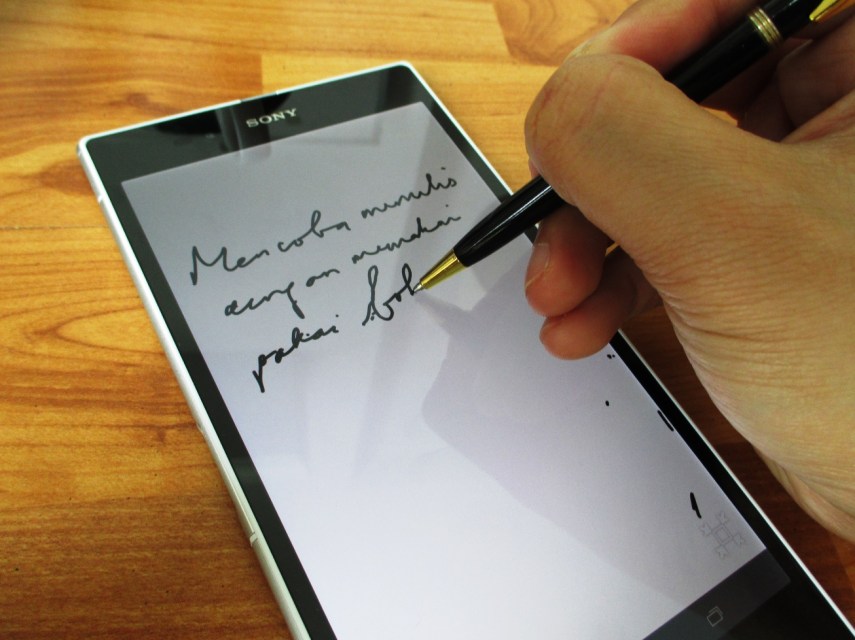 SONY
Mencoba menulis
dengan memakai
pakai bol